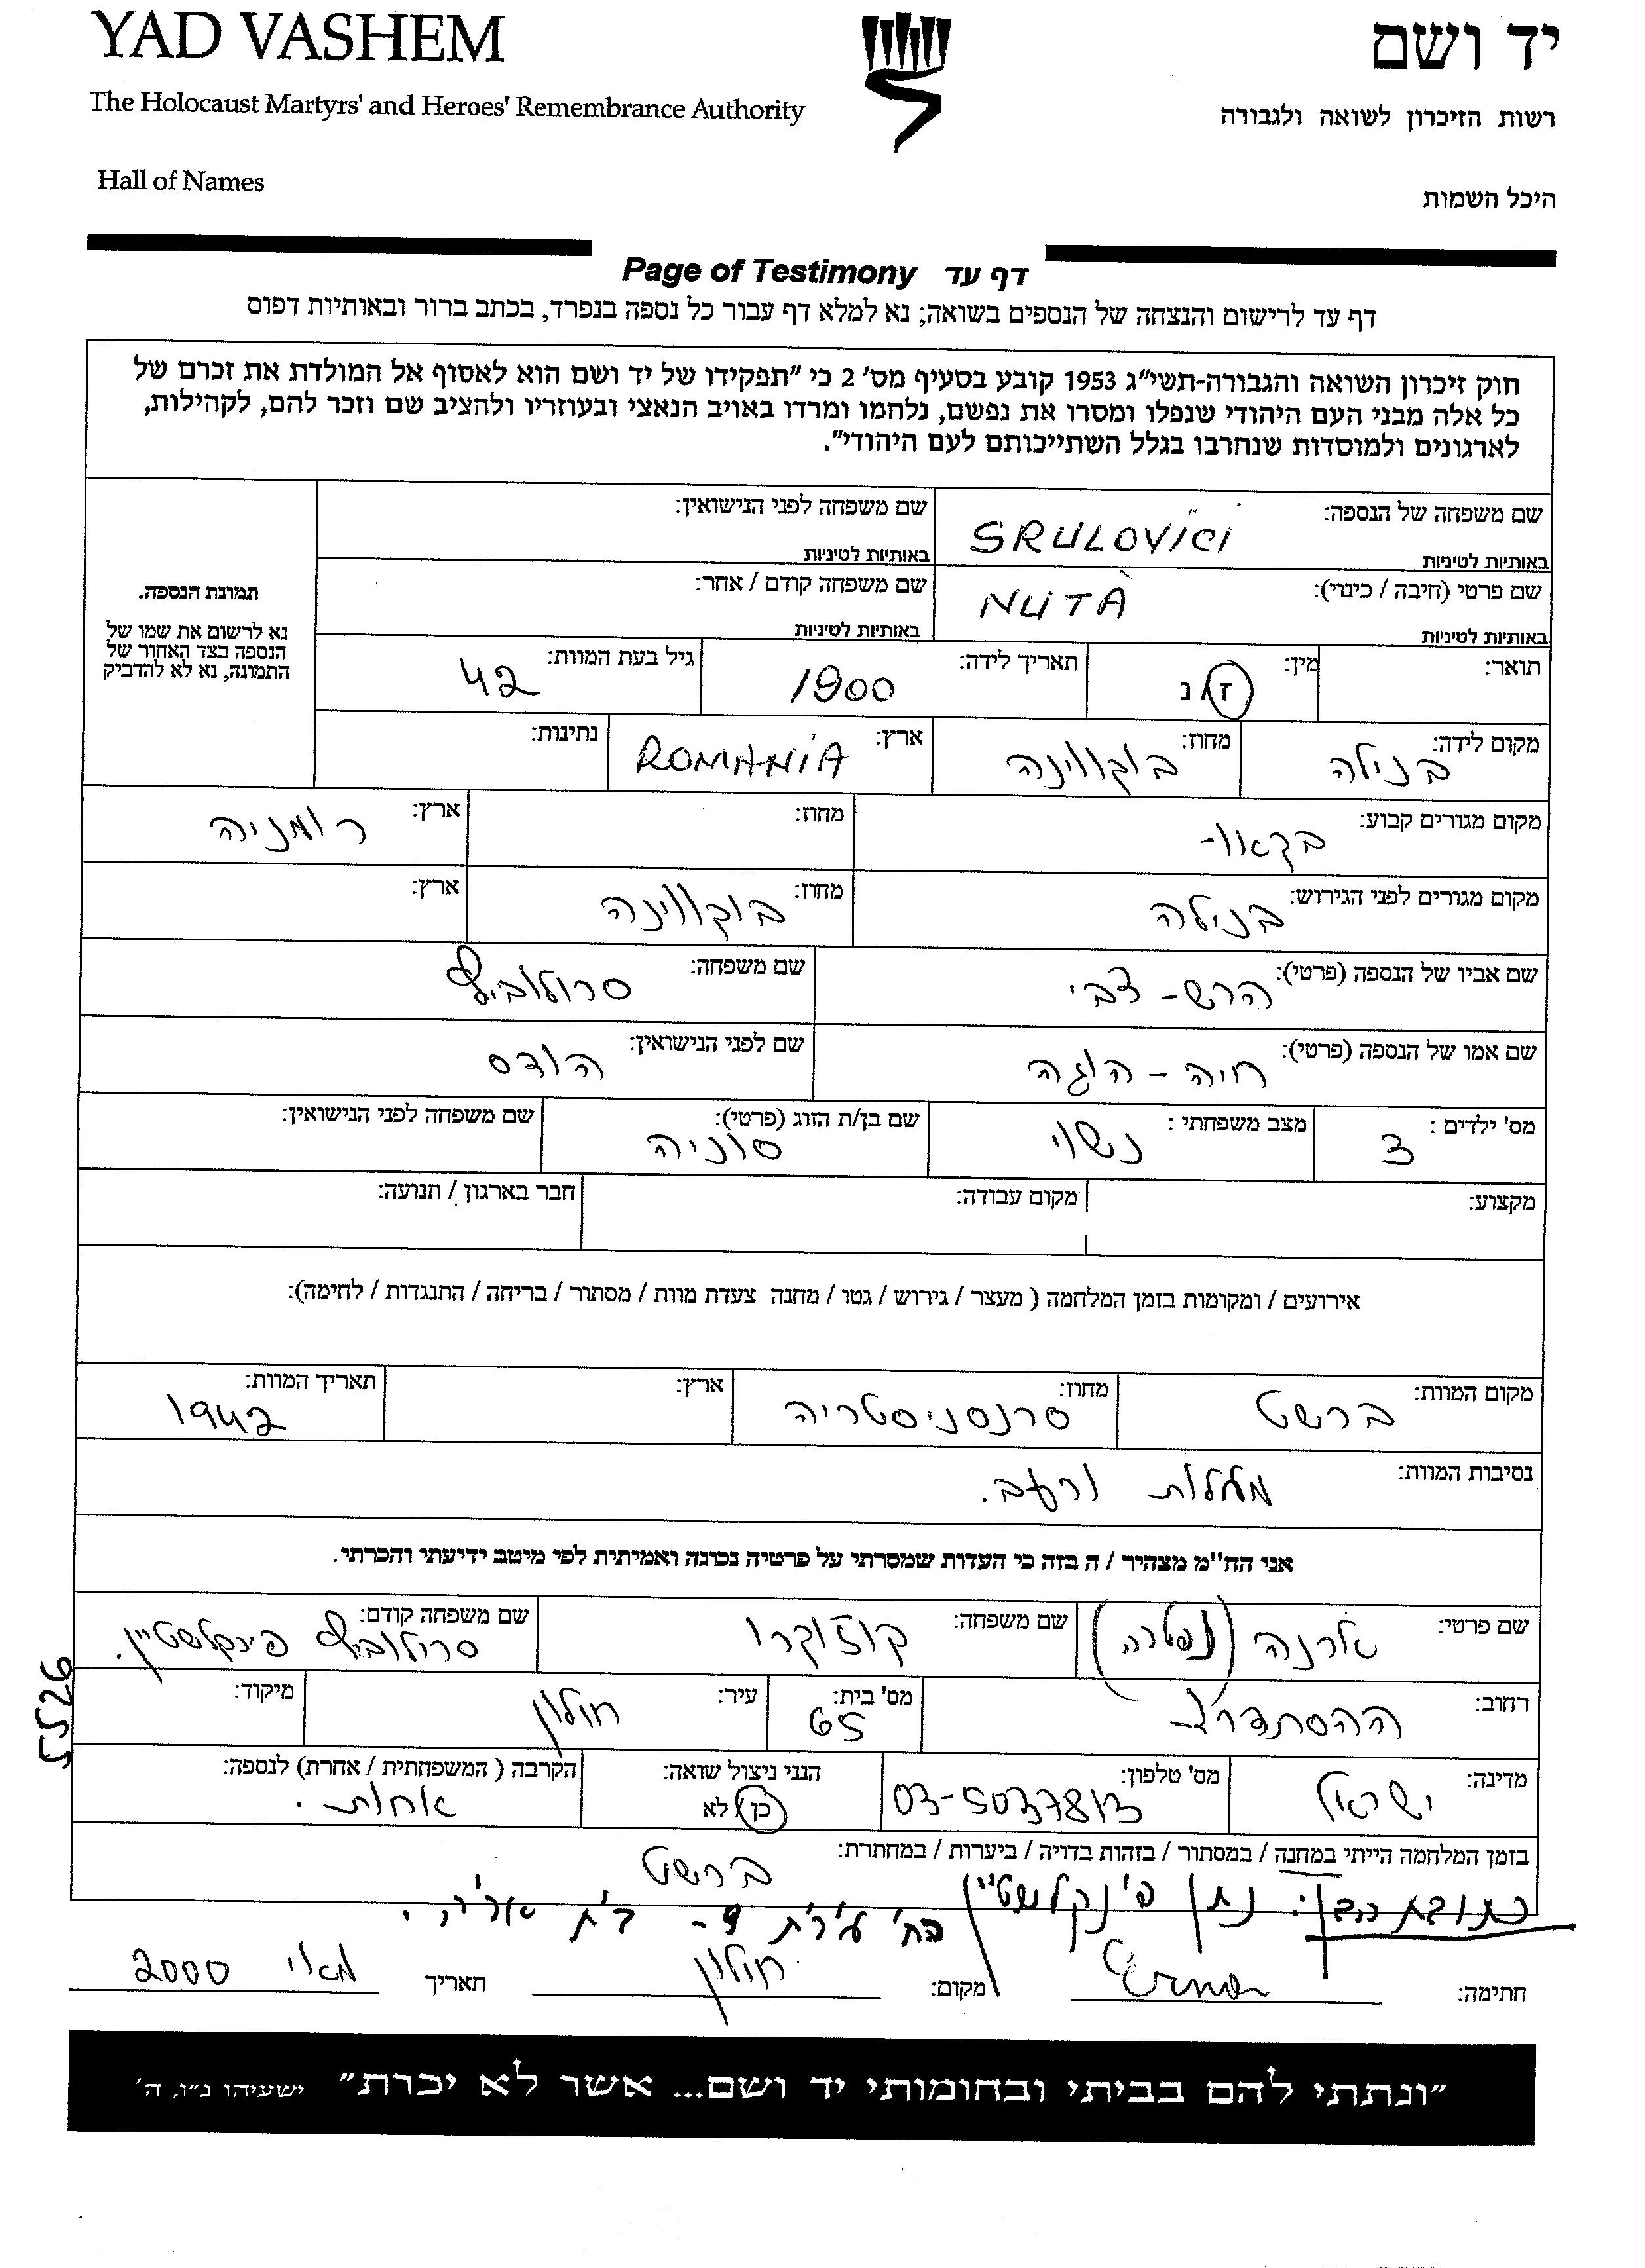 YAD VASHEM
יד ושם
The Holocaust Martyrs' and Heroes' Remembrance Authority
רשות הזיכרון לשואה ולגבורה
Hall of Names
היכל השמות
Page of Testimony דף עד
דף עד לרישום והנצחה של הנספים בשואה; נא למלא דף עבור כל נספה בנפרד, בכתב ברור ובאותיות דפוס
חוק זיכרון השואה והגבורה-תשי"ג 1953 קובע בסעיף מס' 2 כי "תפקידו של יד ושם הוא לאסוף אל המולדת את זכרם של
כל אלה מבני העם היהודי שנפלו ומסרו את נפשם, נלחמו ומרדו באויב הנאצי ובעוזריו ולהציב שם וזכר להם, לקהילות,
לארגונים ולמוסדות שנחרבו בגלל השתייכותם לעם היהודי".
שם משפחה של הנספה: SRULOVICI באותיות לטיניות
שם משפחה לפני הנישואין: באותיות לטיניות
שם פרטי (חיבה / כינוי): NUTA באותיות לטיניות
שם משפחה קודם / אחר: באותיות לטיניות
תמונת הנספה.
נא לרשום את שמו של
הנספה בצד האחור של
התמונה, נא לא להדביק
תואר: מין: ז / נ תאריך לידה: 1900 גיל בעת המוות: 42
מקום לידה: בנילה מחוז: בוקווינה ארץ: ROMANIA נתינות:
מקום מגורים קבוע: בקאו- מחוז: ארץ: רומניה
מקום מגורים לפני הגירוש: בנילה מחוז: בוקווינה ארץ:
שם אביו של הנספה (פרטי): הרש- צבי שם משפחה: סרולוביץ
שם אמו של הנספה (פרטי): חיה - הוגה שם לפני הנישואין: הודס
מס' ילדים : 3 מצב משפחתי : נשוי שם בן/ת הזוג (פרטי): סוניה שם משפחה לפני הנישואין:
מקצוע: מקום עבודה: חבר בארגון / תנועה:
אירועים / ומקומות בזמן המלחמה ( מעצר / גירוש / גטו / מחנה צעדת מוות / מסתור / בריחה / התנגדות / לחימה):
מקום המוות: ברשט מחוז: טרנסניסטריה ארץ: תאריך המוות: 1942
נסיבות המוות: מחלות ורעב.
אני הח"מ מצהיר / ה בזה כי העדות שמסרתי על פרטיה נכונה ואמיתית לפי מיטב ידיעתי והכרתי.
שם פרטי: ארנה (נפטרה) שם משפחה: קוזוקרו שם משפחה קודם: סרולוביץ פינקלשטיין.
רחוב: ההסתדרות מס' בית: 65 עיר: חולון מיקוד:
5526
מדינה: ישראל מס' טלפון: 03-5037813 הנני ניצול שואה: כן / לא הקרבה ( המשפחתית / אחרת) לנספה: אחות.
בזמן המלחמה הייתי במחנה / במסתור / בזהות בדויה / ביערות / במחתרת: ברשט
כתובת הבן: נתן פינקלשטיין
חתימה: Erna מקום: חולון תאריך מאי 2000
"ונתתי להם בביתי ובחומותי יד ושם... אשר לא יכרת" ישעיהו נ"ו, ה'